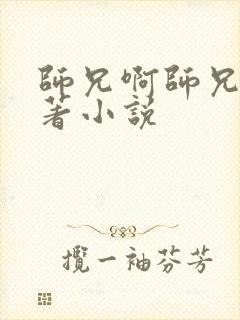 師兄啊師兄
著小説
攬一袖芬芳